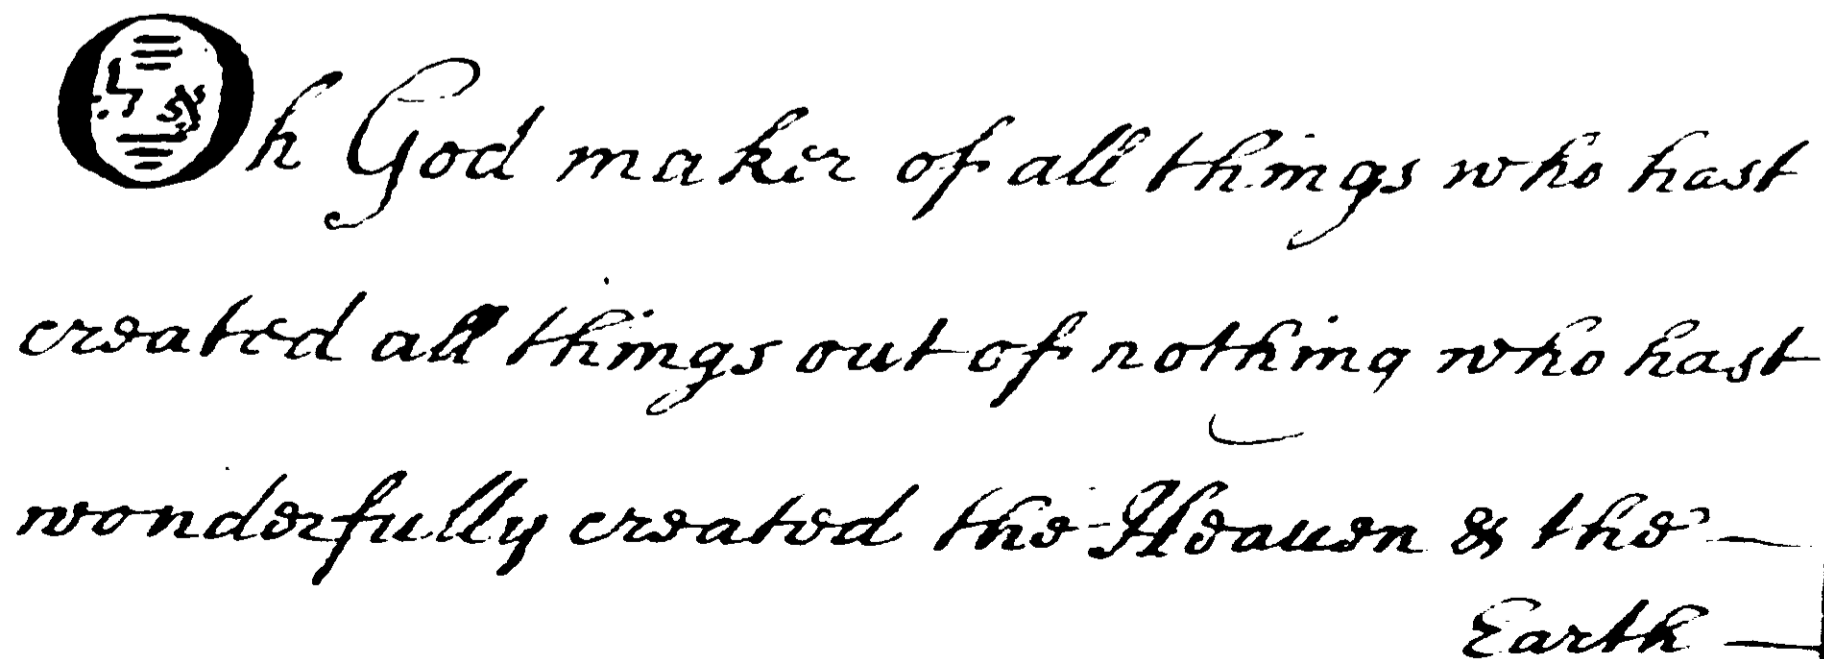 Oh God maker of all things who hast
created all things out of nothing who hast
wonderfully created the Heauen & the —
Earth —